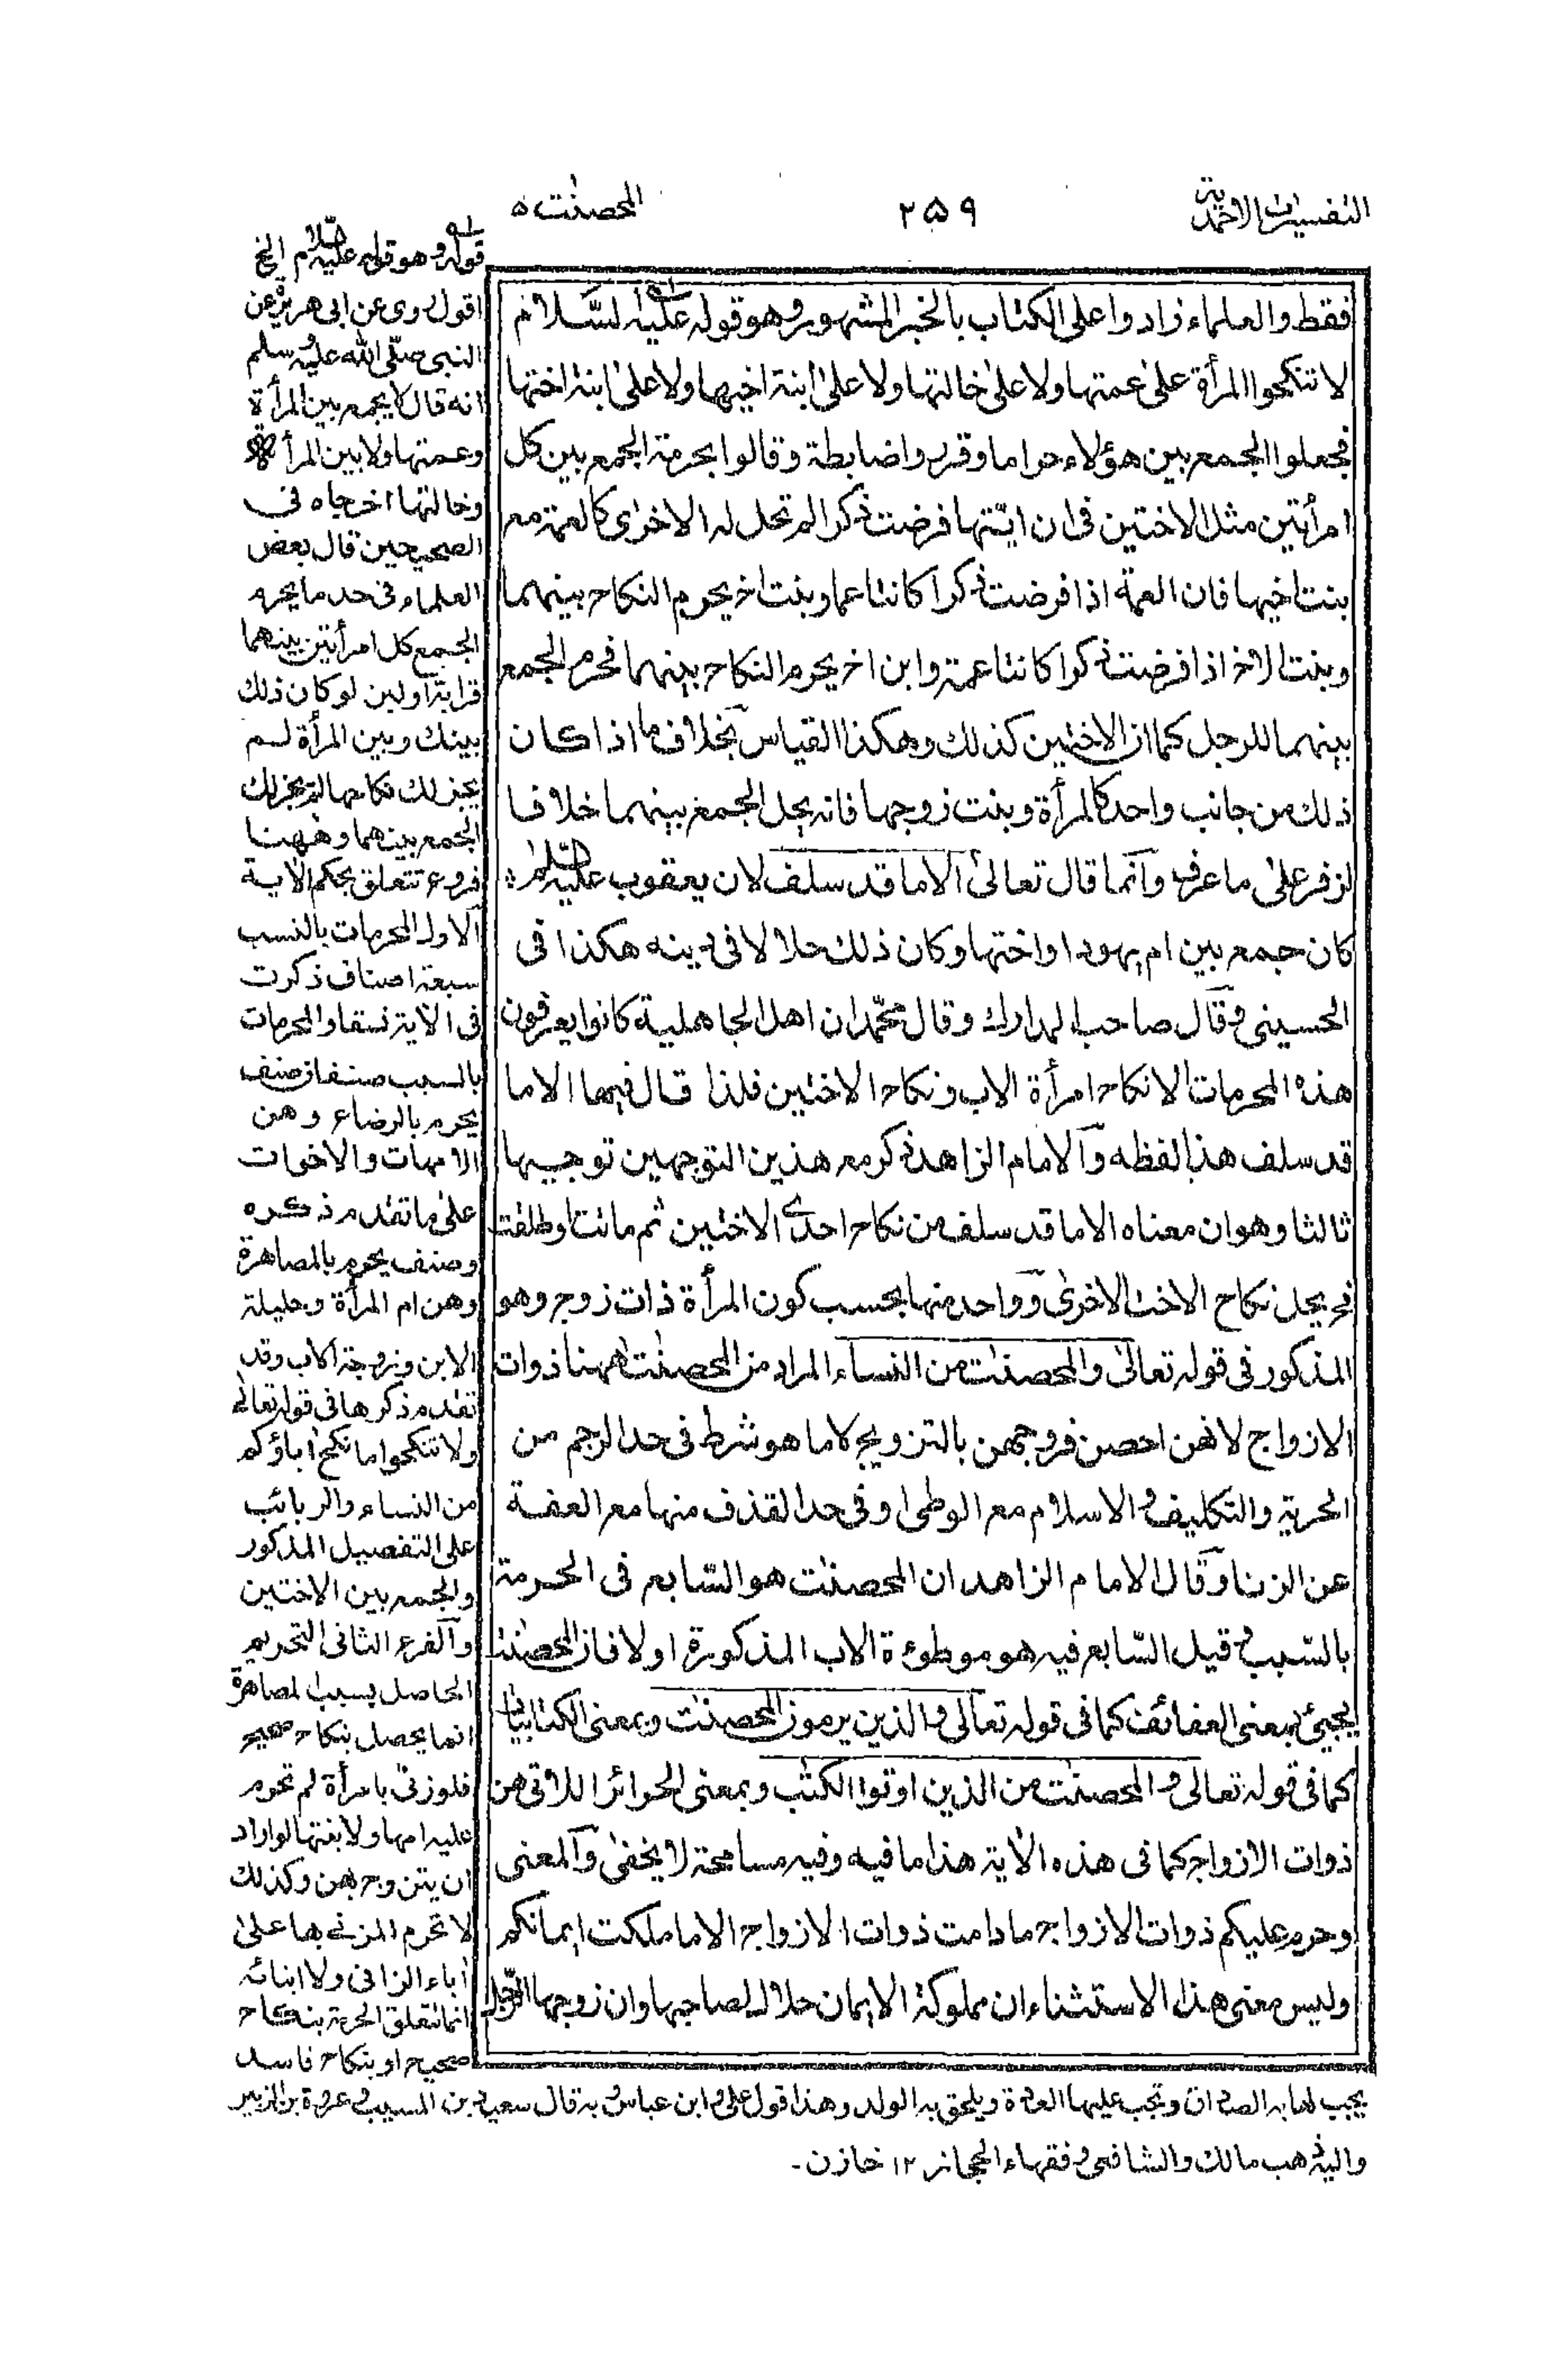 التفسيرات الاحمدية
٢٥٩
المحصنٰت ٥
فقط والعلماء زادوا على الكتاب بالخبر المشهور وهو قوله عليه السّلام
لا تنكحوا المرأة علىٰ عمتها ولا علىٰ خالتها ولا علىٰ ابنة اخيها ولا علىٰ ابنة اختها
فجعلوا الجمع بين هؤلاء حراما وقرروا ضابطة وقالوا بحرمة الجمع بين كل
امرأتين مثل الاختين فى ان ايّتها فرضت ذكرا لم تحل له الاخرٰى كالعمة مع
بنت اخيها فان العمة اذا فرضت ذكرا كانتا عما وبنت اخ يحرم النكاح بينهما
وبنت الاخ اذا فرضت ذكرا كانتا عمة وابن اخ يحرم النكاح بينهما فحرم الجمع
بينهما للرجل كما ان الاختين كذلك وهكذا القياس بخلاف ما اذا كان
ذلك من جانب واحد كالمرأة وبنت زوجها فانه يحل الجمع بينهما خلافا
لزفر علىٰ ما عرف وانّما قال تعالىٰ الا ما قد سلف لان يعقوب عليه السلام
كان جمع بين ام يهودا واختها وكان ذلك حلالا فى دينه هكذا فى
الحسينى وقال صاحب المدارك وقال محمّد ان اهل الجاهلية كانوا يعرفون
هذه المحرمات الا نكاح امرأة الاب ونكاح الاختين فلذا قال فيهما الا ما
قد سلف هذا لفظه والامام الزاهد ذكر مع هذين التوجهين توجيها
ثالثا وهو ان معناه الا ما قد سلف من نكاح احدى الاختين ثم ماتت او طلقت
فح يحل نكاح الاخت الاخرىٰ وواحد منها بحسب كون المرأة ذات زوج وهو
المذكور فى قوله تعالىٰ والمحصنٰت من النساء المراد من المحصنٰت ههنا ذوات
الازواج لانهن احصن فروجهن بالتزويج لا ما هو شرط فى حد الرجم من
الحرية والتكليف والاسلام مع الوطى او فى حد القذف منها مع العفة
عن الزنا وقال الامام الزاهد ان المحصنٰت هو السّابع فى الحرمة
بالسّبب وقيل السّابع فيه هو موطوءة الاب المذكورة اولا فان المحصنٰت
يجيئ بمعنى العفائف كما فى قوله تعالى والذين يرمون المحصنٰت وبمعنى الكتابيات
كما فى قوله تعالى والمحصنٰت من الذين اوتوا الكتٰب وبمعنى الحرائر اللاتى هن
ذوات الازواج كما فى هذه الاٰية هذا ما فيه وفيه مسامحة لا يخفىٰ والمعنى
وحرم عليكم ذوات الازواج ما دامت ذوات الازواج الا ما ملكت ايمانكم
وليس معنى هذا الاستثناء ان مملوكة الايمان حلال لصاحبها وان زوجها الرّجل
قوله وهو قوله عليه السلام الخ
اقول روى عن ابى هريرة عن
النبى صلّى الله عليه وسلم
انه قال لا يجمع بين المرأة
وعمتها ولا بين المرأة
وخالتها اخرجاه فى
الصحيحين قال بعض
العلماء فى حد ما يحرم
الجمع كل امرأتين بينهما
قرابة او لبن لو كان ذلك
بينك وبين المرأة لم
يجز لك نكاحها لم يجز لك
الجمع بينهما وههنا
فروع تتعلق بحكم الاٰية
الاول المحرمات بالنسب
سبعة اصناف ذكرت
فى الاٰية نسقا والمحرمات
بالسبب صنفان صنف
يحرم بالرضاع وهن
الامهات والاخوات
علىٰ ما تقدم ذكره
وصنف يحرم بالمصاهرة
وهن ام المرأة وحليلة
الابن وزوجة الاب وقد
تقدم ذكرها فى قوله تعالى
ولا تنكحوا ما نكح اٰباؤكم
من النساء والربائب
على التفصيل المذكور
والجمع بين الاختين
والفرع الثانى التحريم
الحاصل بسبب المصاهرة
انما يحصل بنكاح صحيح
فلو زنى بامرأة لم تحرم
عليه امها ولا بنتها لو اراد
ان يتزوج بهن وكذلك
لا تحرم المزنى بها علىٰ
اٰباء الزانى ولا ابنائه
انما تتعلق الحرمة بنكاح
صحيح او بنكاح فاسد
يجب لها به الصداق وتجب عليها العدة ويلحق به الولد وهذا قول على وابن عباس وبه قال سعيد بن المسيب وعروة بن الزبير
واليه ذهب مالك والشافعى وفقهاء الحجاز ١٢ خازن ـ